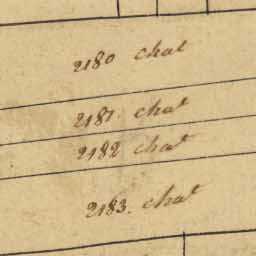 2180 chat
2181 chat
2182 chat
2183. chat